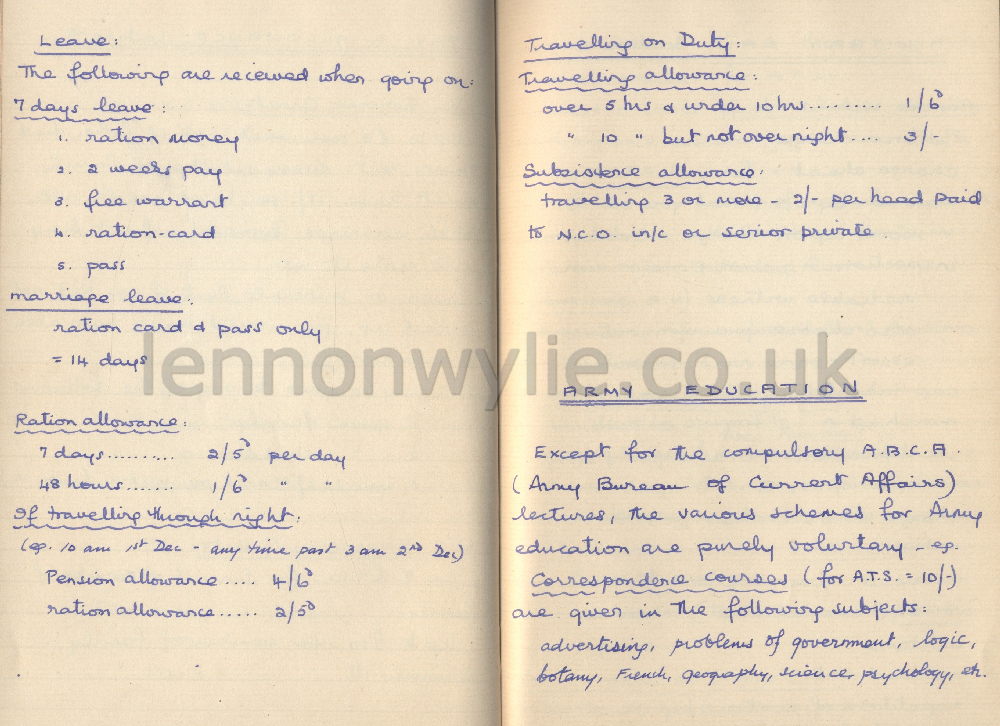 Leave:
The following are received when going on:
7 days leave:
1. ration money
2. 2 weeks pay
3. free warrant
4. ration-card
5. pass
marriage leave.
ration card & pass only
= 14 days
Ration allowance:
7 days......... 2/5ᴰ per day
48 hours....... 1/6ᴰ " "
If travelling through night:
(eg. 10 am 1st Dec - any time past 3 am 2nd Dec)
Pension allowance .... 4/6ᴰ
ration allowance ...... 2/5ᴰ
Travelling on Duty:
Travelling allowance:
over 5 hrs & under 10 hrs.......... 1/6ᴰ
" 10 " but not over night.... 3/-
Subsistence allowance.
travelling 3 or more - 2/- per head paid
to N.C.O. in/c or senior private.
ARMY EDUCATION
Except for the compulsory A.B.C.A.
(Army Bureau of Current Affairs)
lectures, the various schemes for Army
education are purely voluntary - eg.
Correspondence courses (for A.T.S. = 10/-)
are given in the following subjects:
advertising, problems of government, logic,
botany, French, geography, science, psychology, etc.
lennonwylie.co.uk